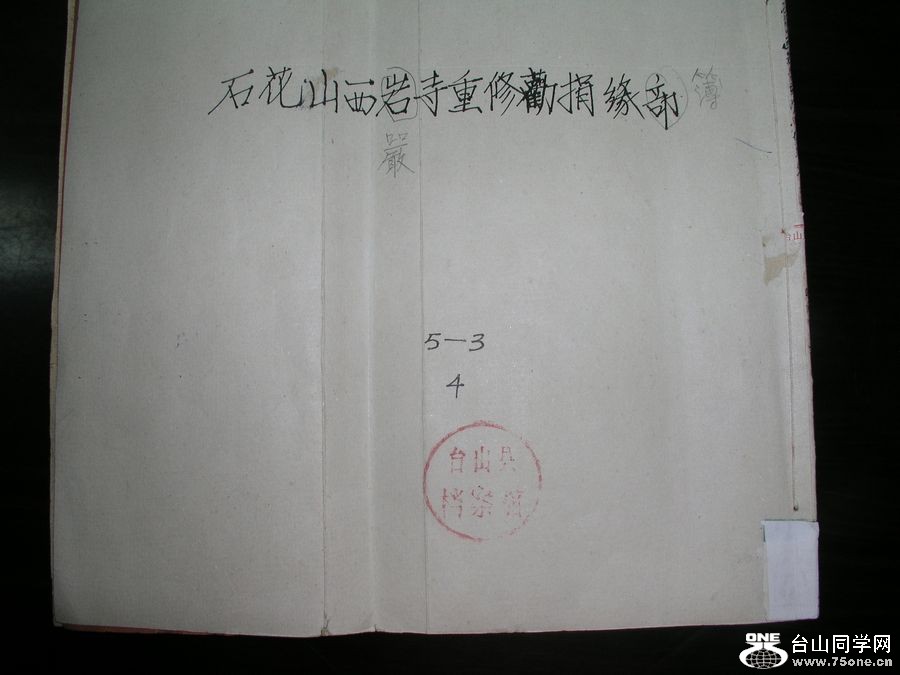 石花山西岩寺重修勸捐緣部 簿
嚴
5-3
4
台山县
档案馆
台山
ONE
台山同学网
www.75one.cn